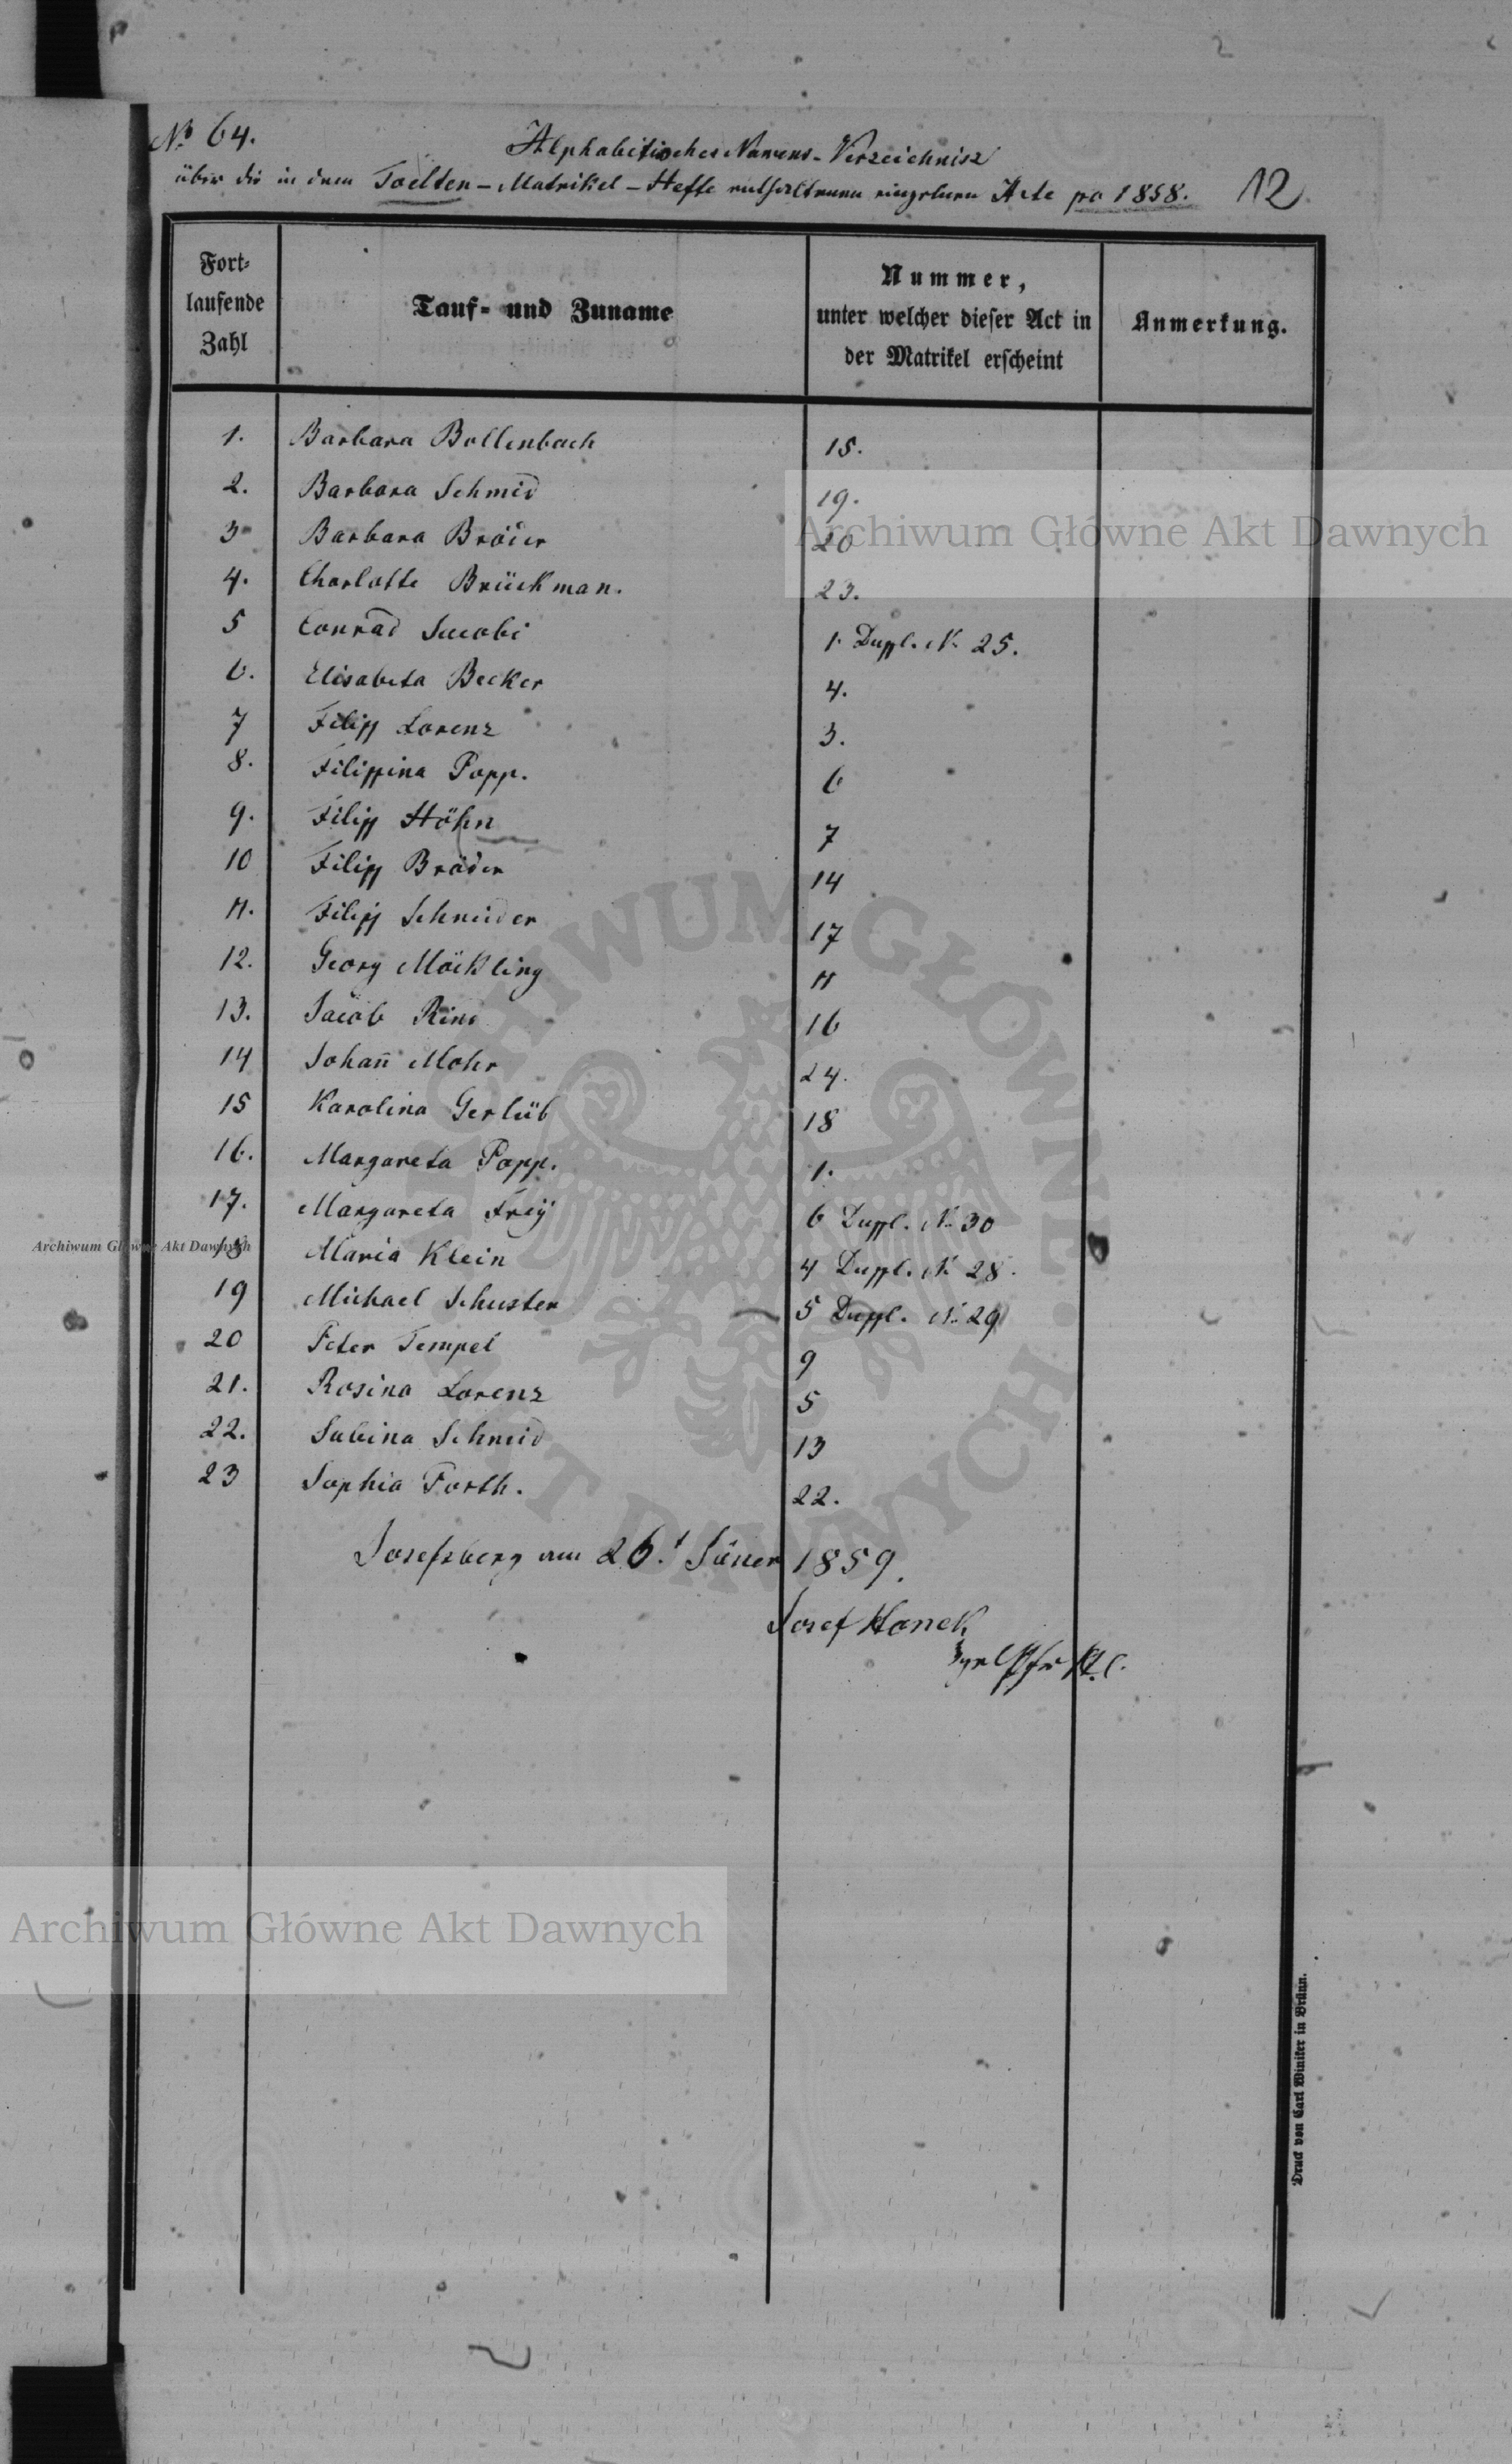 № 64.
Alphabetisches Namens-Verzeichnisz
über die in dem Todten-Matrikel-Hefte enthaltenen einzelnen Acte pro 1858. 12.
Fort-
laufende
Zahl
Tauf- und Zuname
Nummer,
unter welcher dieser Act in
der Matrikel erscheint
Anmerkung.
1. Barbara Bollenbach 15.
2. Barbara Schmid 19.
3 Barbara Bröder 20
4. Charlotte Brückman. 23.
5 Conrad Jacobi 1 Dupl. N. 25.
6. Elisabeta Becker 4.
7 Filipp Lorenz 3.
8. Filippina Popp. 6
9. Filipp Höhn 7
10 Filipp Bröder 14
11. Filipp Schneider 17
12. Georg Möckling 11
13. Jacob 16
14 Johan̄ Mohr 24.
15 Karolina Gerlüb 18
16. Margareta Popp. 1.
17. Margareta Freÿ 6 Dupl. N. 30
18 Maria Klein 4 Dupl. N. 28.
19 Michael Schuster 5 Dupl. N. 29
20 Peter Tempel 9
21. Rosina Lorenz 5
22. Sabina Schmid 13
23 Sophia Forth. 22.
Josefsberg am 26t Jäner 1859.
Josef Hanek
Druck von Carl Winiker in Brünn.
Archiwum Główne Akt Dawnych
Archiwum Główne Akt Dawnych
Archiwum Główne Akt Dawnych
ARCHIWUM GŁÓWNE AKT DAWNYCH